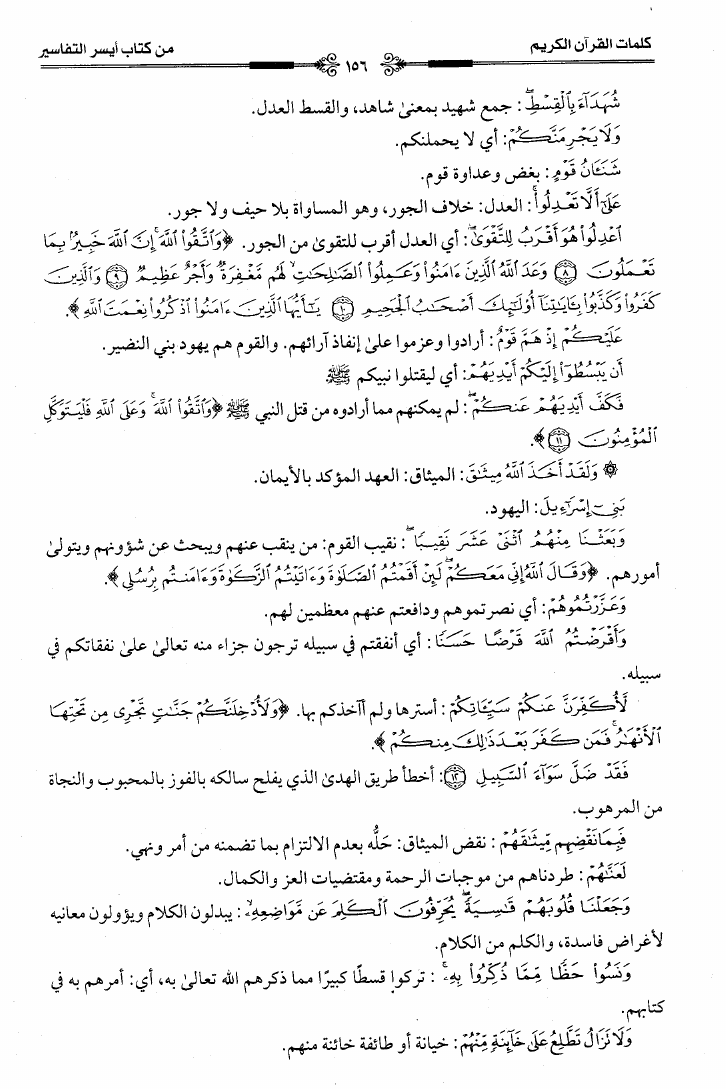 كلمات القرآن الكريم ١٥٦ من كتاب أيسر التفاسير
شُهَدَآءَ بِٱلْقِسْطِ ۖ: جمع شهيد بمعنى شاهد، والقسط العدل.
وَلَا يَجْرِمَنَّكُمْ: أي لا يحملنكم.
شَنَـَٔانُ قَوْمٍ: بغض وعداوة قوم.
عَلَىٰٓ أَلَّا تَعْدِلُوا۟ ۚ: العدل: خلاف الجور، وهو المساواة بلا حيف ولا جور.
ٱعْدِلُوا۟ هُوَ أَقْرَبُ لِلتَّقْوَىٰ ۖ: أي العدل أقرب للتقوى من الجور. ﴿وَٱتَّقُوا۟ ٱللَّهَ ۚ إِنَّ ٱللَّهَ خَبِيرٌۢ بِمَا
تَعْمَلُونَ ۝٨ وَعَدَ ٱللَّهُ ٱلَّذِينَ ءَامَنُوا۟ وَعَمِلُوا۟ ٱلصَّـٰلِحَـٰتِ ۙ لَهُم مَّغْفِرَةٌ وَأَجْرٌ عَظِيمٌ ۝٩ وَٱلَّذِينَ
كَفَرُوا۟ وَكَذَّبُوا۟ بِـَٔايَـٰتِنَآ أُو۟لَـٰٓئِكَ أَصْحَـٰبُ ٱلْجَحِيمِ ۝١٠ يَـٰٓأَيُّهَا ٱلَّذِينَ ءَامَنُوا۟ ٱذْكُرُوا۟ نِعْمَتَ ٱللَّهِ﴾.
عَلَيْكُمْ إِذْ هَمَّ قَوْمٌ: أرادوا وعزموا على إنفاذ آرائهم. والقوم هم يهود بني النضير.
أَن يَبْسُطُوٓا۟ إِلَيْكُمْ أَيْدِيَهُمْ: أي ليقتلوا نبيكم ﷺ
فَكَفَّ أَيْدِيَهُمْ عَنكُمْ ۖ: لم يمكنهم مما أرادوه من قتل النبي ﷺ ﴿وَٱتَّقُوا۟ ٱللَّهَ ۚ وَعَلَى ٱللَّهِ فَلْيَتَوَكَّلِ
ٱلْمُؤْمِنُونَ ۝١١﴾.
۞ وَلَقَدْ أَخَذَ ٱللَّهُ مِيثَـٰقَ: الميثاق: العهد المؤكد بالأيمان.
بَنِىٓ إِسْرَٰٓءِيلَ: اليهود.
وَبَعَثْنَا مِنْهُمُ ٱثْنَىْ عَشَرَ نَقِيبًا ۖ: نقيب القوم: من ينقب عنهم ويبحث عن شؤونهم ويتولى
أمورهم. ﴿وَقَالَ ٱللَّهُ إِنِّى مَعَكُمْ ۖ لَئِنْ أَقَمْتُمُ ٱلصَّلَوٰةَ وَءَاتَيْتُمُ ٱلزَّكَوٰةَ وَءَامَنتُم بِرُسُلِى﴾.
وَعَزَّرْتُمُوهُمْ: أي نصرتموهم ودافعتم عنهم معظمين لهم.
وَأَقْرَضْتُمُ ٱللَّهَ قَرْضًا حَسَنًا: أي أنفقتم في سبيله ترجون جزاء منه تعالى على نفقاتكم في
سبيله.
لَّأُكَفِّرَنَّ عَنكُمْ سَيِّـَٔاتِكُمْ: أسترها ولم آآخذكم بها. ﴿وَلَأُدْخِلَنَّكُمْ جَنَّـٰتٍ تَجْرِى مِن تَحْتِهَا
ٱلْأَنْهَـٰرُ ۚ فَمَن كَفَرَ بَعْدَ ذَٰلِكَ مِنكُمْ﴾.
فَقَدْ ضَلَّ سَوَآءَ ٱلسَّبِيلِ ۝١٢: أخطأ طريق الهدى الذي يفلح سالكه بالفوز بالمحبوب والنجاة
من المرهوب.
فَبِمَا نَقْضِهِم مِّيثَـٰقَهُمْ: نقض الميثاق: حَلُّه بعدم الالتزام بما تضمنه من أمر ونهي.
لَعَنَّـٰهُمْ: طردناهم من موجبات الرحمة ومقتضيات العز والكمال.
وَجَعَلْنَا قُلُوبَهُمْ قَـٰسِيَةً ۖ يُحَرِّفُونَ ٱلْكَلِمَ عَن مَّوَاضِعِهِۦ ۙ: يبدلون الكلام ويؤولون معانيه
لأغراض فاسدة، والكلم من الكلام.
وَنَسُوا۟ حَظًّا مِّمَّا ذُكِّرُوا۟ بِهِۦ ۚ: تركوا قسطًا كبيرًا مما ذكرهم الله تعالى به، أي: أمرهم به في
كتابهم.
وَلَا تَزَالُ تَطَّلِعُ عَلَىٰ خَآئِنَةٍ مِّنْهُمْ: خيانة أو طائفة خائنة منهم.